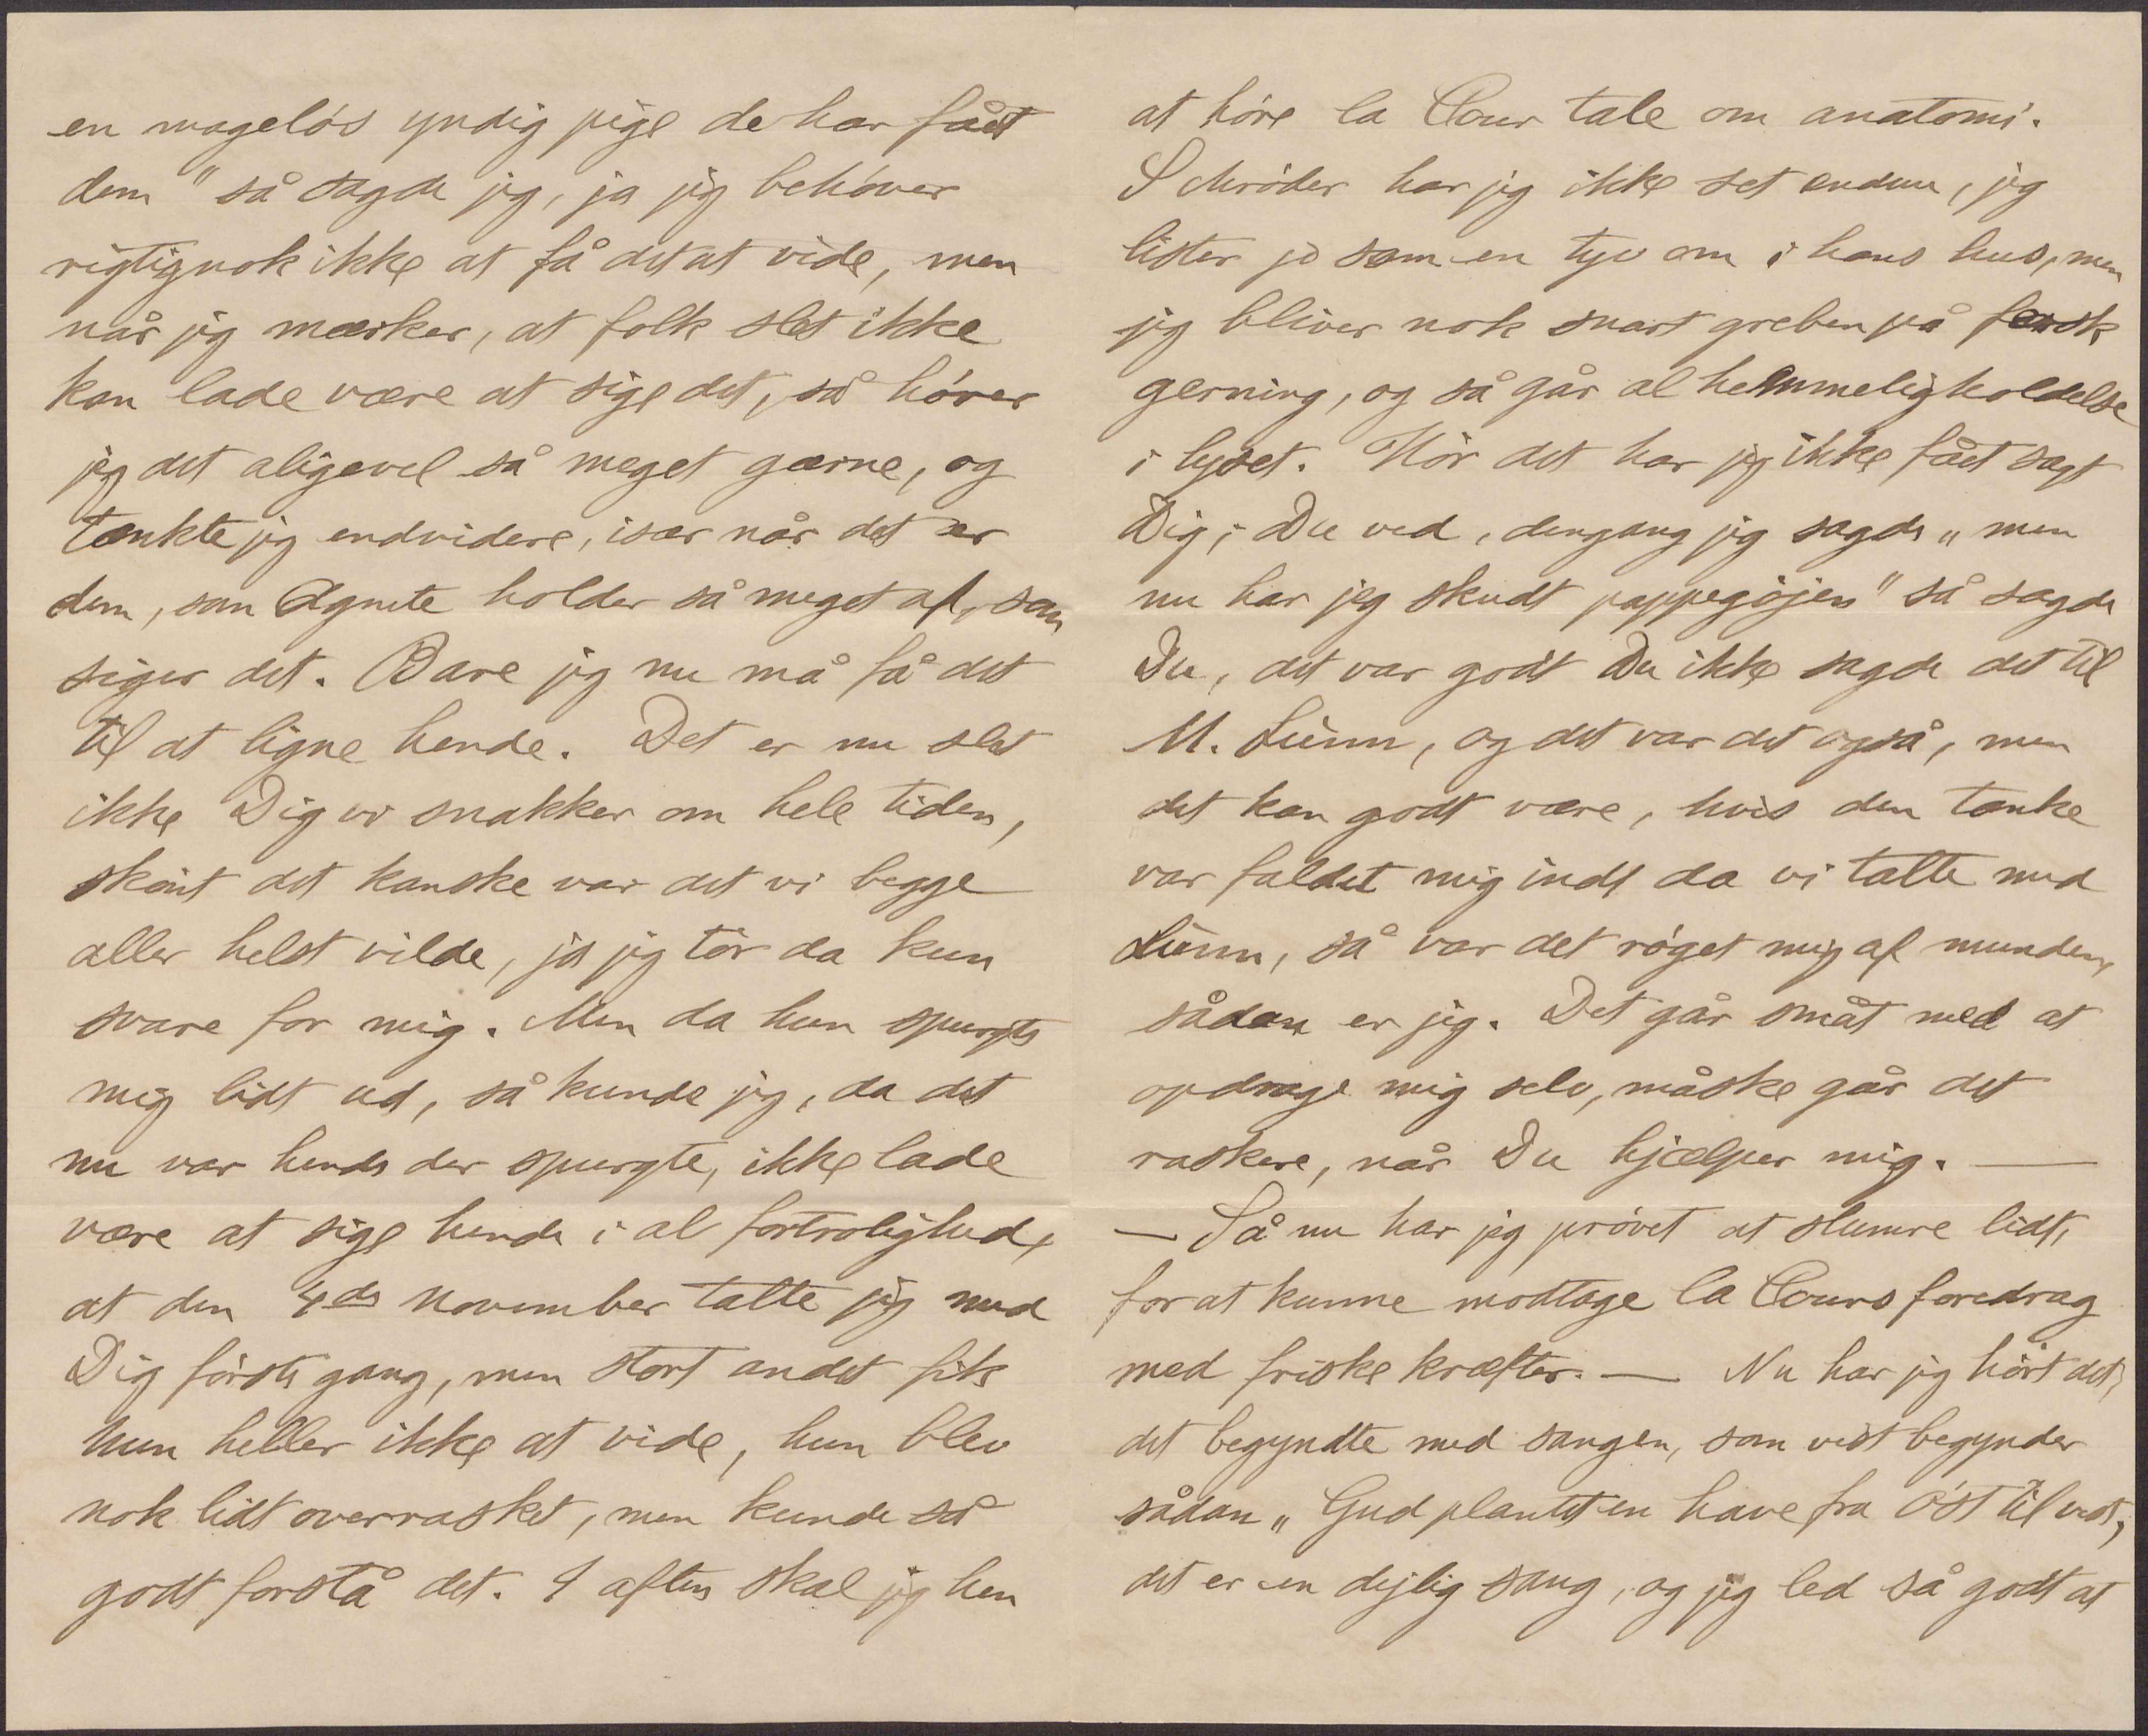 en mageløs yndig pige de har fået
dem" så sagde jeg, ja jeg behøver
rigtignok ikke at få det at vide, men
når jeg mærker, at folk slet ikke
kan lade være at sige det, så hører
jeg det aligevel så meget gærne, og
tænkte jeg endvidere, især når det er
dem, som Agnete holder så meget af, som
siger det. Bare jeg nu må få det
til at ligne hende. Det er nu slet
ikke Dig vi snakker om hele tiden,
skønt det kanske var det vi begge
aller helst vilde, ja jeg tør da kun
svare for mig. Men da hun spurgte
mig lidt ud, så kunde jeg, da det
nu var hende der spurgte, ikke lade
være at sige hende i al fortrolighed,
at den 4de November talte jeg med
Dig første gang, men stort andet fik
hun heller ikke at vide, hun blev
nok lidt overrasket, men kunde så
godt forstå det. I aften skal jeg hen
at høre la Cour tale om anatomi.
Schrøder har jeg ikke set endnu, jeg
lister jo som en tyv om i hans hus, men
jeg bliver nok snart greben på fersk
gerning, og så går al hemmeligholdelse
i lyset. Hør det har jeg ikke fået sagt
Dig; Du ved, dengang jeg sagde „men
nu har jeg skudt pappegøjen" så sagde
Du, det var godt Du ikke sagde det til
M. Lünn, og det var det også, men
det kan godt være, hvis den tanke
var faldet mig ind, da vi talte med
Lünn, så var det røget mig af munden,
sådan er jeg. Det går småt med at
opdrage mig selv, måske går det
raskere, når Du hjælper mig. —
— Så nu har jeg prøvet at slumre lidt,
for at kunne modtage la Cours foredrag
med friske kræfter. — Nu har jeg hørt det,
det begyndte med sangen, som vist begynder
sådan „Gud plantet en have fra Øst til vest,
det er en dejlig sang, og jeg led så godt at